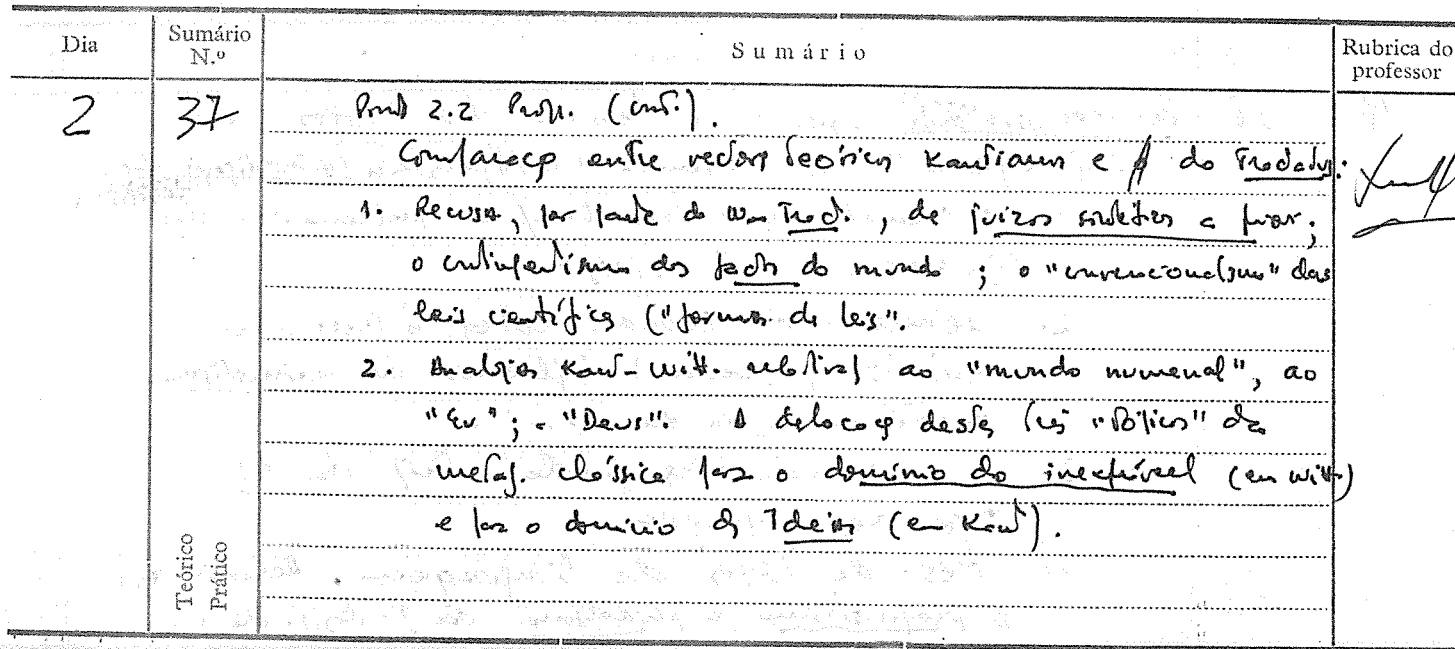 Dia
Sumário N.º
Sumário
Rubrica do professor
2
37
2.2 (cont.).
Comparação entre vectores teóricos kantianos e do Tractatus:
1. Recusa, por parte do Tract., de juízos sintéticos a priori;
o contingentismo dos factos do mundo; o "convencionalismo" das
leis científicas ("formas de leis".
2. Analogias Kant-Witt. relativas ao "mundo numenal", ao
"Eu"; a "Deus". A deslocação destes três "tópicos" da
metaf. clássica para o domínio do inexprimível (em Witt.)
e para o domínio das Ideias (em Kant).
Teórico
Prático